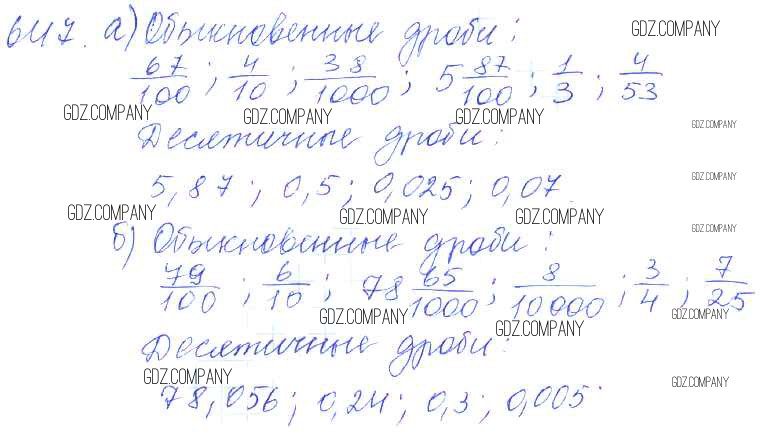 647. а) Обыкновенные дроби:
GDZ.COMPANY
67/100; 4/10; 38/1000; 5 87/100; 1/3; 4/53
GDZ.COMPANY GDZ.COMPANY GDZ.COMPANY GDZ.COMPANY
Десятичные дроби:
5,87; 0,5; 0,025; 0,07
GDZ.COMPANY
GDZ.COMPANY GDZ.COMPANY GDZ.COMPANY GDZ.COMPANY
б) Обыкновенные дроби:
79/100; 6/10; 78 65/1000; 8/10000; 3/4; 7/25
GDZ.COMPANY GDZ.COMPANY GDZ.COMPANY
Десятичные дроби:
GDZ.COMPANY GDZ.COMPANY
78,056; 0,24; 0,3; 0,005